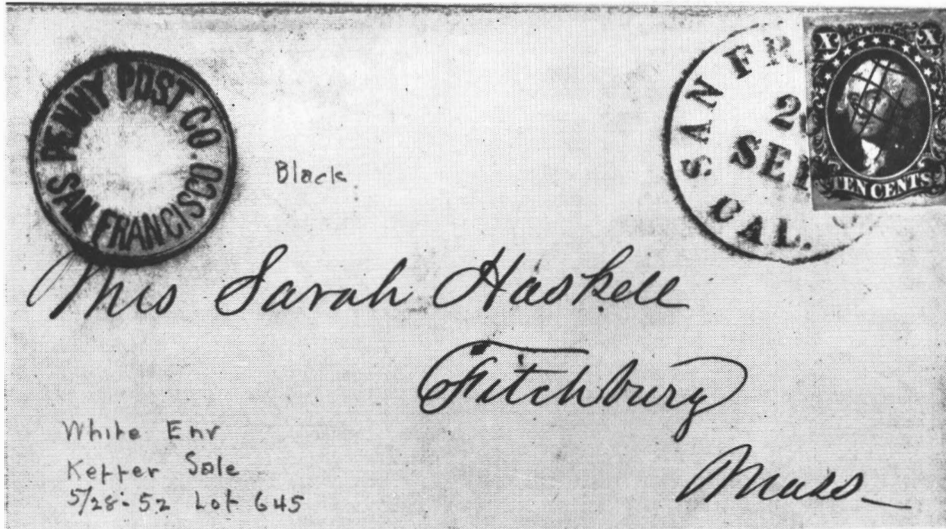 PENNY POST CO.
SAN FRANCISCO
SAN FR
2
SEP
CAL.
X X
TEN CENTS
Black
Mrs Sarah Haskell
Fitchburg
Mass
White Env
Kepper Sale
5/28-52 Lot 645